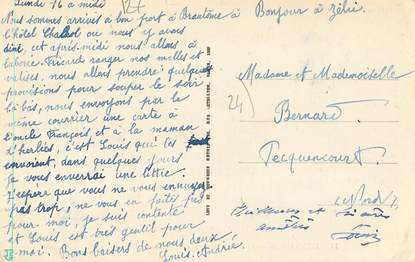 Lundi 16 à midi
Nous sommes arrivés à bon port à Brantôme à
l'hôtel Chabrol où nous y avons
diné, cet après-midi nous allons à
laborie. Tricard ranger nos milles et
valises, nous allons prendre quelques
provisions pour souper le soir
là bas, nous envoyons par le
même courrier une carte à
l'oncle François, et à la maman
d'herblies, c'est Louis qui les
envoient, dans quelques jours
je vous enverrai une lettre.
J'espère que vous ne vous ennuyez
pas trop, ne vous en faites pas
pour moi, je suis contente
et Louis est très gentil pour
moi. Bons baisers de nous deux.
Louis - Andrée
Bonjour à Zélie
Madame et Mademoiselle
Bernard
Tecquencourt
(Nord)
24